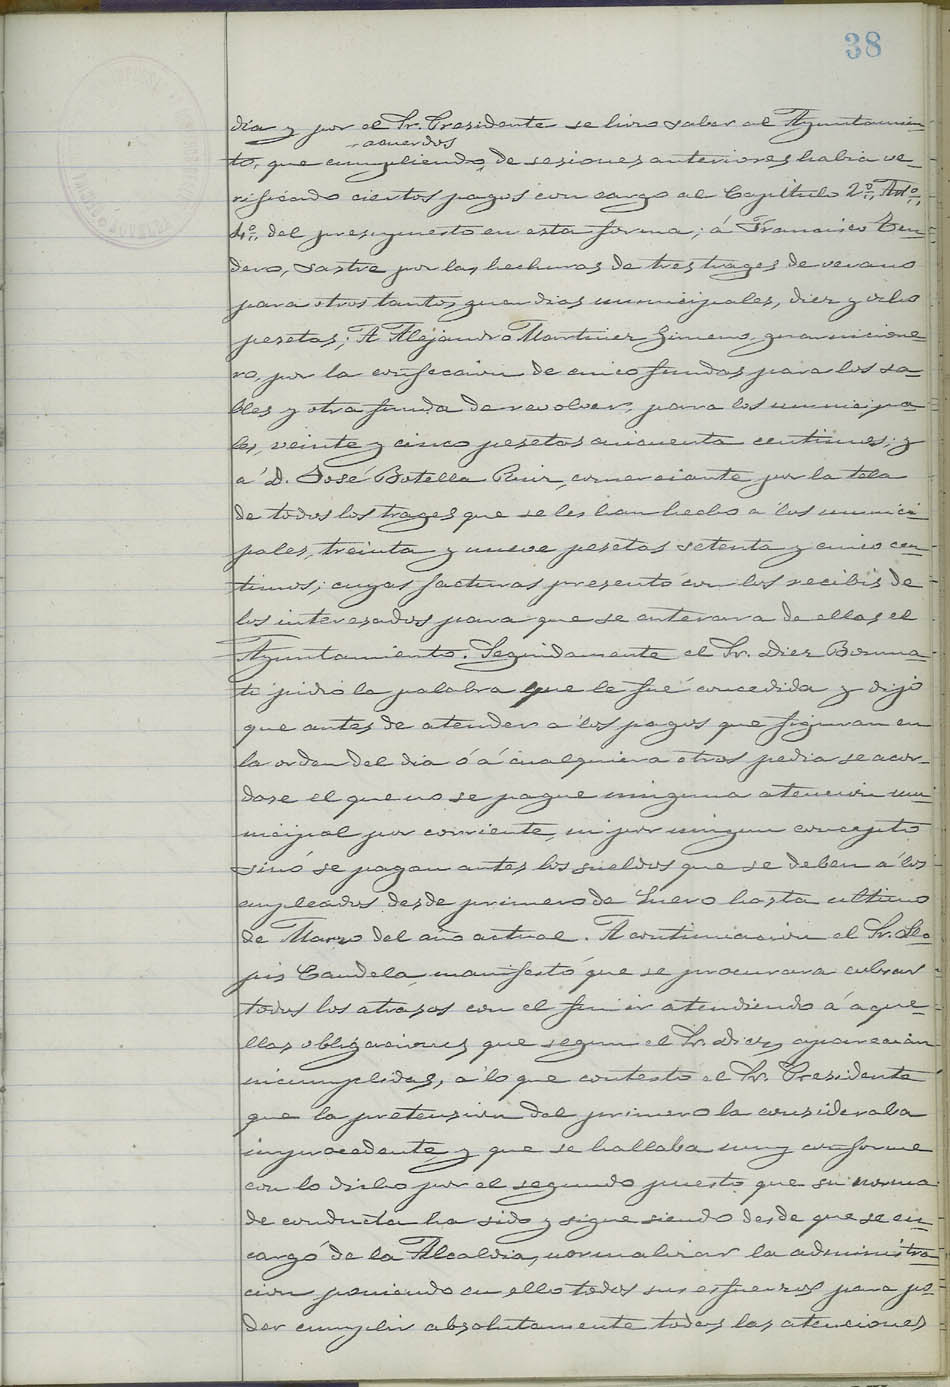 38
dia y por el Sr. Presidente se hizo saber al Ayuntamien-
acuerdos
to, que cumpliendo de sesiones anteriores habia ve
rificado ciertos pagos con cargo al Capitulo 2º, Artº
4º del presupuesto en esta forma; á Francisco Ten-
dero, sastre por las hechuras de tres trages de verano
para otros tantos guardias municipales, diez y ocho
pesetas; A Alejandro Martinez Gimeno, guarnicione-
ro, por la confeccion de cinco fundas para los sa-
bles y otra funda de revolver, para los municipa-
les, veinte y cinco pesetas cincuenta centimos; y
a D. José Botella Ruiz, comerciante por la tela
de todos los trages que se les han hecho á los munici
pales, treinta y nueve pesetas setenta y cinco cen-
timos; cuyas facturas presentó con los recibís de
los interesados para que se enterara de ellas el
Ayuntamiento. Seguidamente el Sr. Diez Bonma-
ti pidió la palabra que le fué concedida y dijo
que antes de atender a los pagos que figuran en
la orden del dia ó á cualquiera otros pedia se acor-
dase el que no se pague ninguna atencion mu-
nicipal por corriente, ni por ningun concepto
sinó se pagan antes los sueldos que se deben á los
empleados desde primero de Enero hasta ultimo
de Marzo del año actual. A continuacion el Sr. Llo-
pis Candela, manifestó que se procurara cubrir
todos los atrasos con el fin ir atendiendo á aque-
llas obligaciones que segun el Sr. Diez, aparecian
incumplidas, a lo que contesto el Sr. Presidente
que la pretension del primero la consideraba
improcedente y que se hallaba muy conforme
con lo dicho por el segundo puesto que su norma
de conducta ha sido y sigue siendo desde que se en-
cargó de la Alcaldia, normalizar la administra-
cion poniendo en ello todos sus esfuerzos para po-
der cumplir absolutamente todas las atenciones